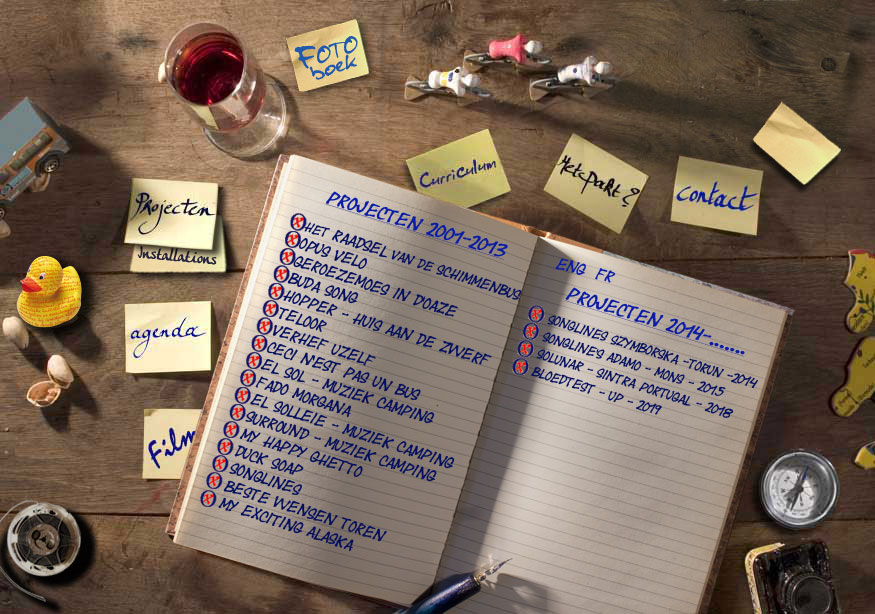 FOTO
boek
Curriculum
Metspakt?
contact
Projecten
Installations
agenda
Film
PROJECTEN 2001-2013
HET RAADSEL VAN DE SCHIMMENBUS
OPUS VELO
GEROEZEMOES IN DOAZE
BUDA SONG
HOPPER - HUIS AAN DE ZWERF
TELOOR
VERHEF UZELF
CECI N'EST PAS UN BUS
EL SOL - MUZIEK CAMPING
FADO MORGANA
EL SOLLEIE - MUZIEK CAMPING
SURROUND - MUZIEK CAMPING
MY HAPPY GHETTO
DUCK SOAP
SONGLINES
BESTE WENSEN TOREN
MY EXCITING ALASKA
ENG FR
PROJECTEN 2014-.......
SONGLINES SZYMBORSKA -TORUN -2014
SONGLINES ADAMO - MONS - 2015
SOLUNAR - SINTRA PORTUGAL - 2018
BLOEDTEST - UP - 2019